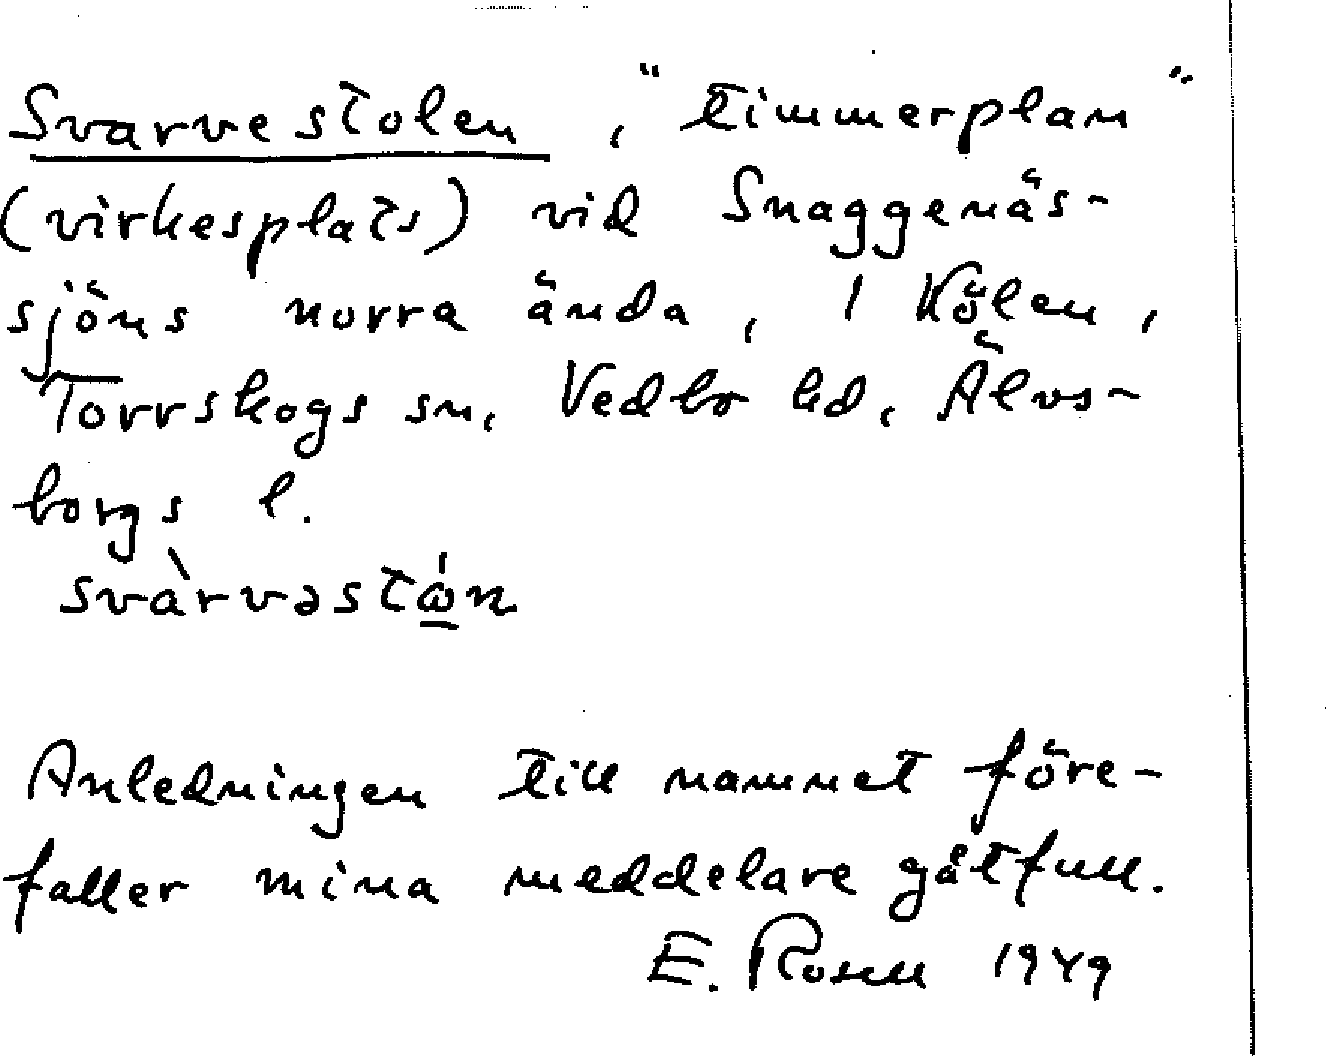 Svarvestolen, "timmerplan"
(virkesplats) vid Snaggenäs-
sjöns norra ända, i Kölen,
Torrskogs sn, Vedbo hd, Älvs-
borgs l.
svàrvəstώ̲n
Anledningen till namnet före-
faller mina meddelare gåtfull.
E. Rosell 1949